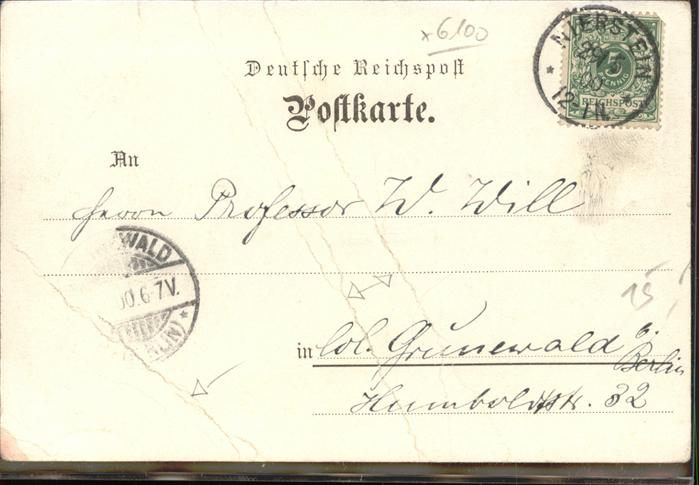 x6100
NIERSTEIN
12-1N.
5
PFENNIG
REICHSPOST
Deutsche Reichspost
Postkarte.
An
Herrn Professor W. Will
WALD
00.6-7V.
15
in Col. Grunewald b.
Berlin
Humboldtstr. 32